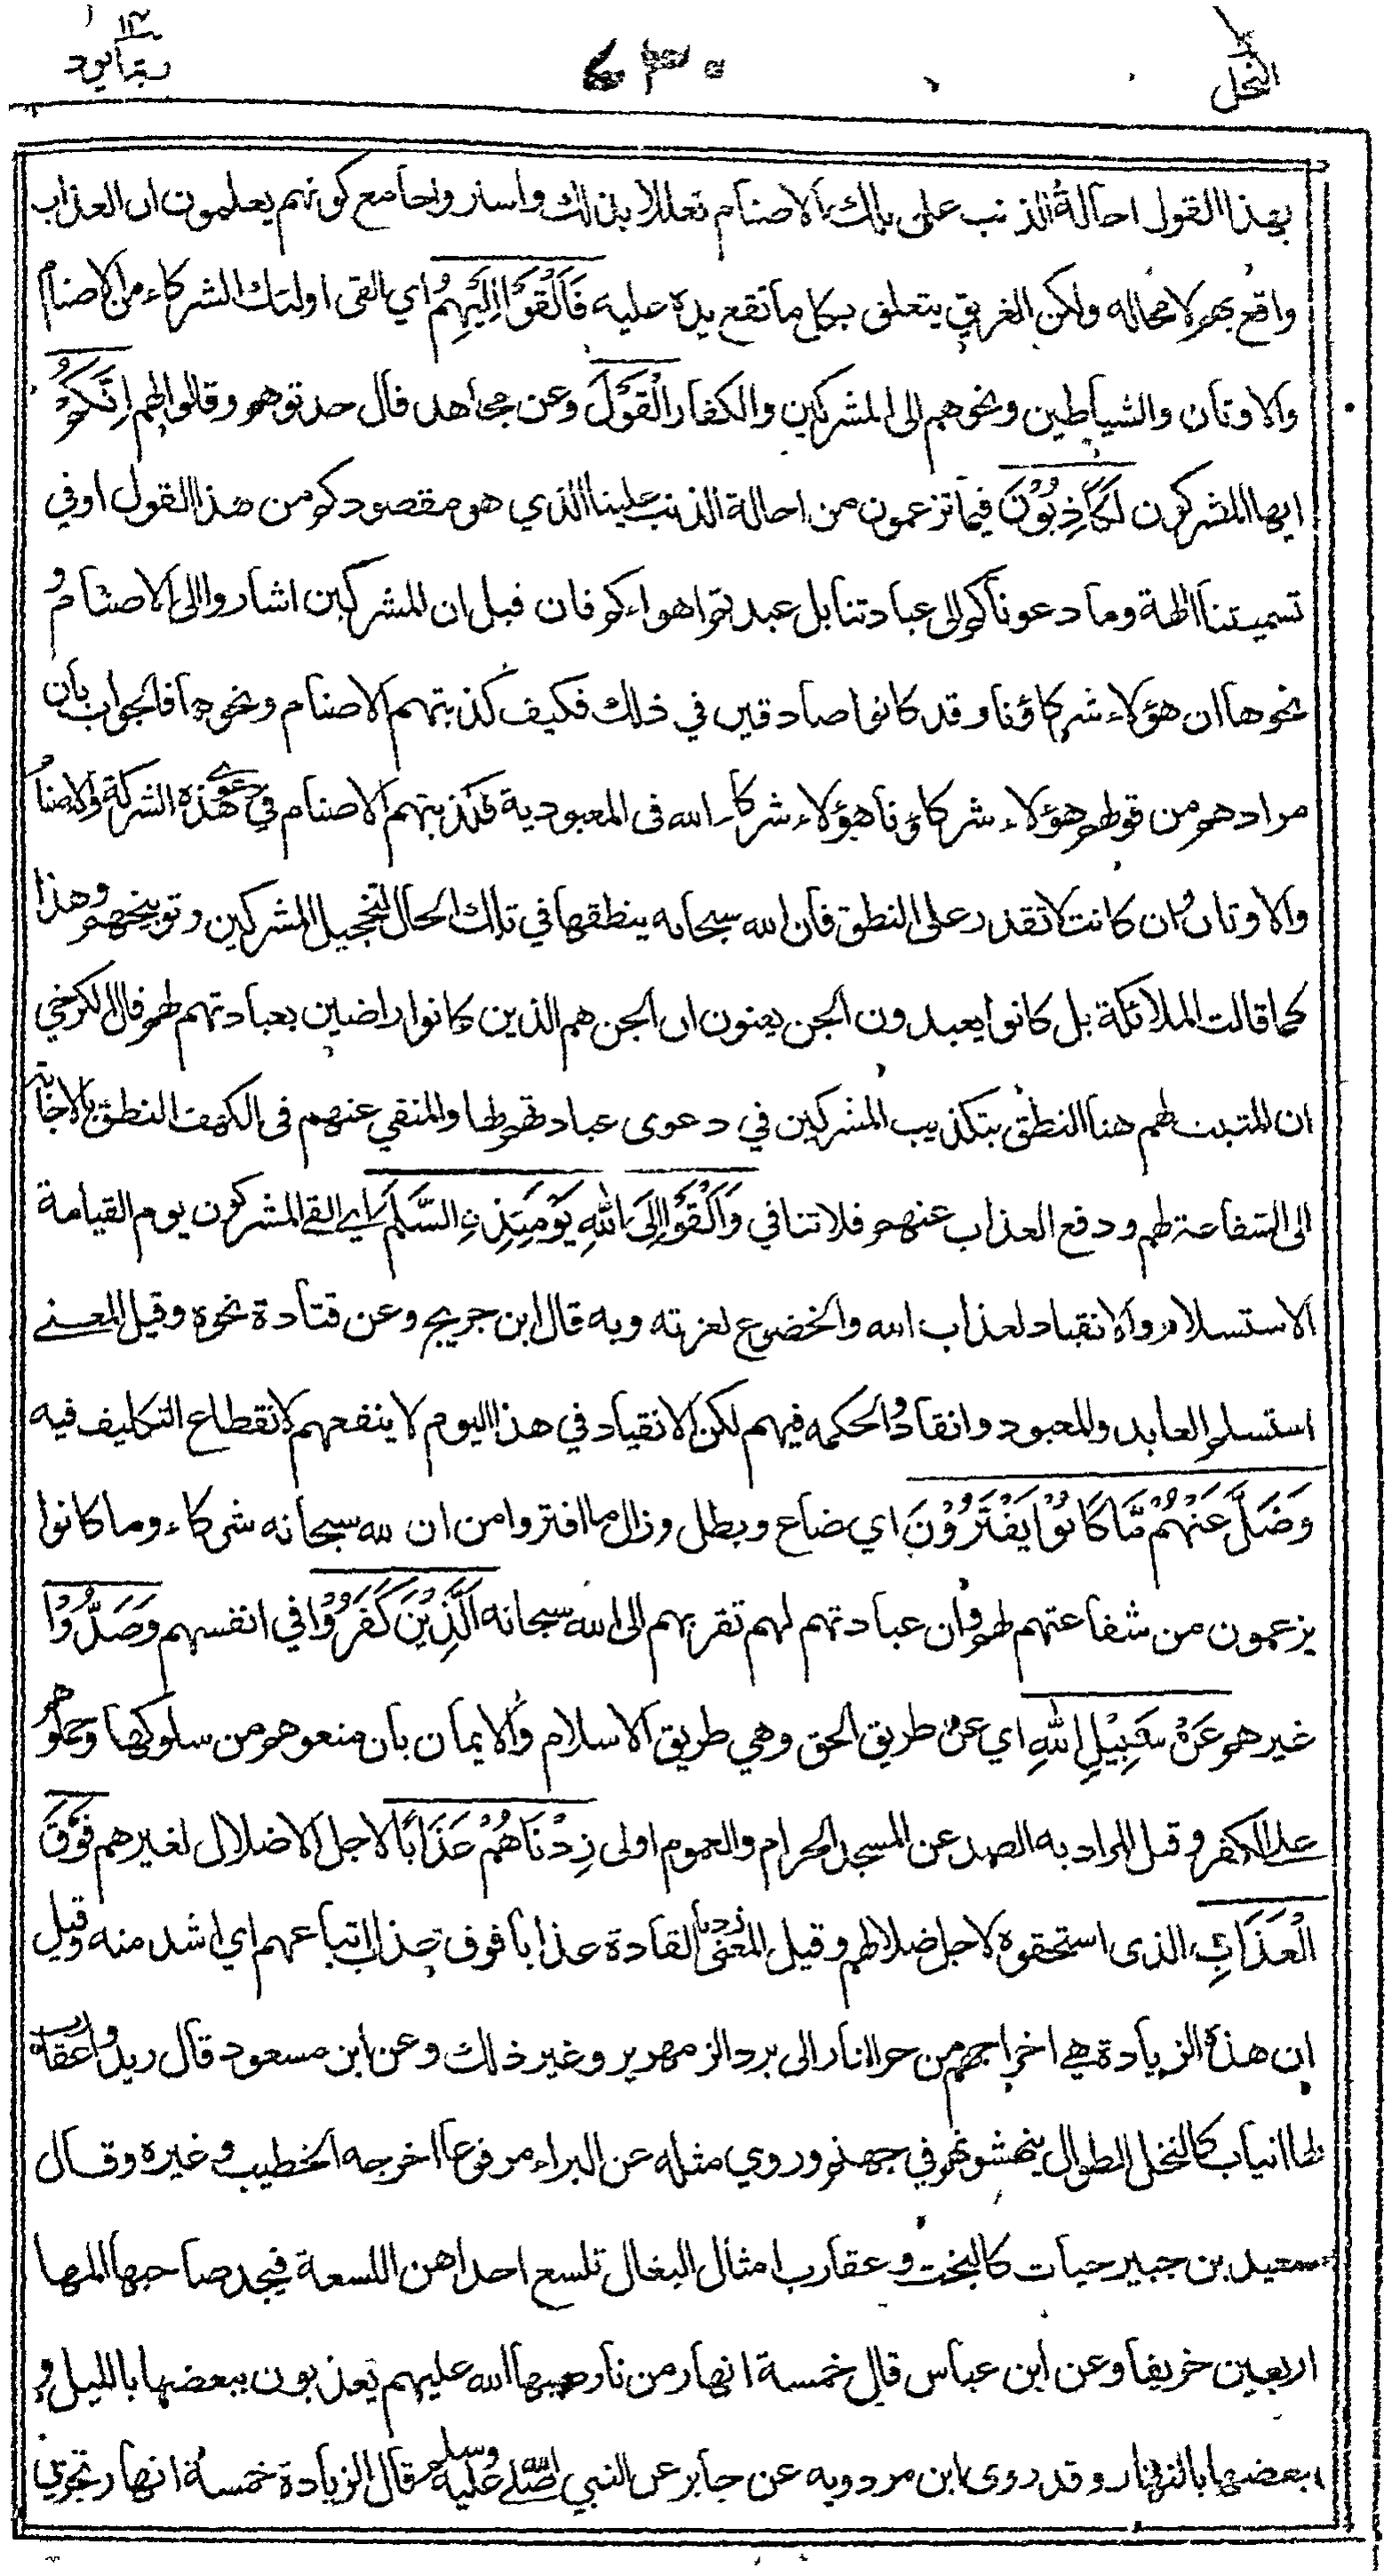 النحل
٤٣٠
ربما ١٤
بهذا القول احالة الذنب على تلك الاصنام تعللا بذلك واسترواحا مع كونهم يعلمون ان العذاب
واقع بهم لا محالة ولكن الغريق يتعلق بكل ما تقع يده عليه فَأَلْقَوْا اِلَيْهِمُ اي القى اولئك الشركاء من الاصنام
والاوثان والشياطين ونحوهم الى المشركين والكفار الْقَوْلَ وعن مجاهد قال حدثوهم وقالوا لهم اِنَّكُمْ
ايها المشركون لَكَاذِبُوْنَ فيما تزعمون من احالة الذنب علينا الذي هو مقصودكم من هذا القول او في
تسميتنا الهة وما دعوناكم الى عبادتنا بل عبدتم اهواءكم فان قيل ان المشركين اشاروا الى الاصنام و
نحوها ان هؤلاء شركاؤنا وقد كانوا صادقين في ذلك فكيف كذبتهم الاصنام ونحوها فالجواب بان
مرادهم من قولهم هؤلاء شركاؤنا هؤلاء شركاء الله فى المعبودية فكذبتهم الاصنام في دعوى هذه الشركة والاصنام
والاوثان وان كانت لا تقدر على النطق فان الله سبحانه ينطقها في تلك الحال لتخجيل المشركين وتوبيخهم وهذا
كما قالت الملائكة بل كانوا يعبدون الجن يعنون ان الجن هم الذين كانوا راضين بعبادتهم لهم قال الكرخي
ان المثبت لهم هنا النطق بتكذيب المشركين في دعوى عبادتهم لها والمنفي عنهم فى الكهف النطق بالاجابة
الى الشفاعة لهم ودفع العذاب عنهم فلا تنافي وَاَلْقَوْا اِلَى اللّٰهِ يَوْمَئِذِنِ السَّلَمَ اي القى المشركون يوم القيامة
الاستسلام والانقياد لعذاب الله والخضوع لعزته وبه قال ابن جريج وعن قتادة نحوه وقيل المعنى
استسلم العابد والمعبود وانقادوا لحكمه فيهم لكن الانقياد في هذا اليوم لا ينفعهم لانقطاع التكليف فيه
وَضَلَّ عَنْهُمْ مَّا كَانُوْا يَفْتَرُوْنَ اي ضاع وبطل وزال ما افتروا من ان لله سبحانه شركاء وما كانوا
يزعمون من شفاعتهم لهم وان عبادتهم لهم تقربهم الى الله سبحانه اَلَّذِيْنَ كَفَرُوْا في انفسهم وَصَدُّوْا
غيرهم عَنْ سَبِيْلِ اللّٰهِ اي عن طريق الحق وهي طريق الاسلام والايمان بان منعوهم من سلوكها وحملوهم
على الكفر وقيل المراد به الصد عن المسجد الحرام والعموم اولى زِدْنَاهُمْ عَذَابًا لاجل الاضلال لغيرهم فَوْقَ
الْعَذَابِ الذى استحقوه لاجل ضلالهم وقيل المعنى زدنا القادة عذابا فوق عذاب اتباعهم اي اشد منه وقيل
ان هذه الزيادة هي اخراجهم من حر النار الى برد الزمهرير وغير ذلك وعن ابن مسعود قال زيدوا عقارب
لها انياب كالنخل الطوال ينهشونهم في جهنم وروي مثله عن البراء مرفوعا اخرجه الخطيب وغيره وقال
سعيد بن جبير حيات كالبخت وعقارب امثال البغال تلسع احداهن اللسعة فيجد صاحبها المها
اربعين خريفا وعن ابن عباس قال خمسة انهار من نار صبها الله عليهم يعذبون ببعضها بالليل و
ببعضها بالنهار وقد روى ابن مردويه عن جابر عن النبي صلى الله عليه وسلم قال الزيادة خمسة انهار تجري